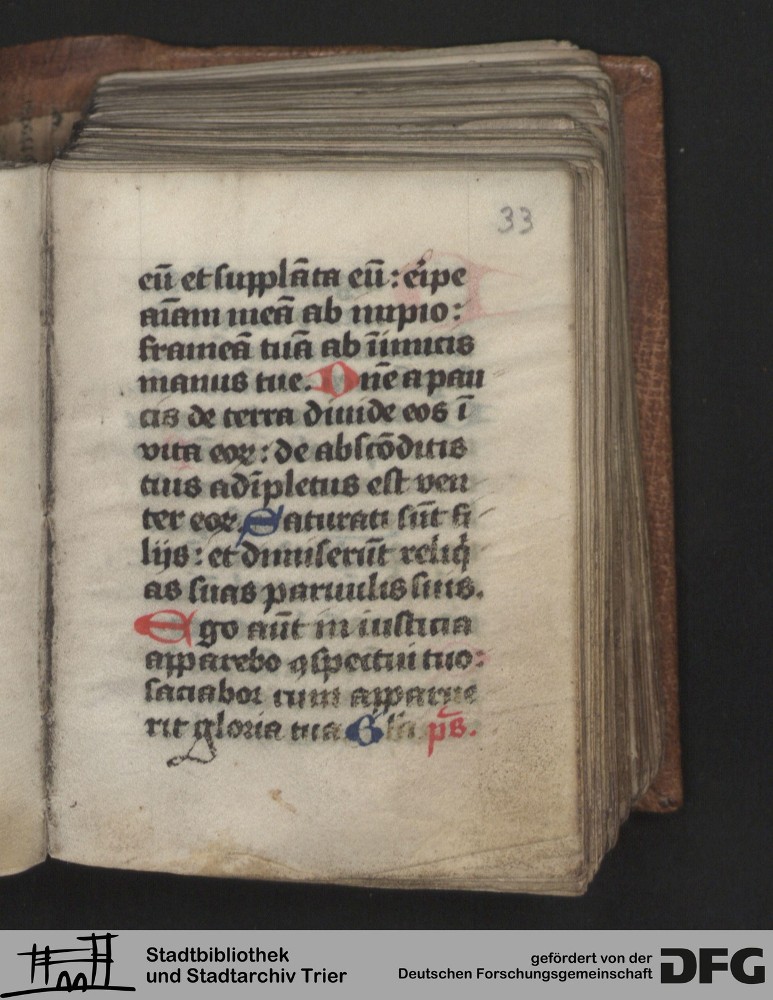 33
eū et supplāta eū : eripe
aīam meā ab impio :
frameā tuā ab īimicis
manus tue. Dnē a pau
cis de terra diuide eos ī
vita eoꝝ : de abscōditis
tuis adīpletus est ven
ter eoꝝ. Saturati sūt fi
lijs : et dimiserūt reliq̇
as suas paruulis suis.
Ego aūt in iusticia
apparebo ꝯspectui tuo :
saciabor cum apparue
rit gloria tua Glīa. ps̄.
Stadtbibliothek
und Stadtarchiv Trier
gefördert von der
Deutschen Forschungsgemeinschaft
DFG